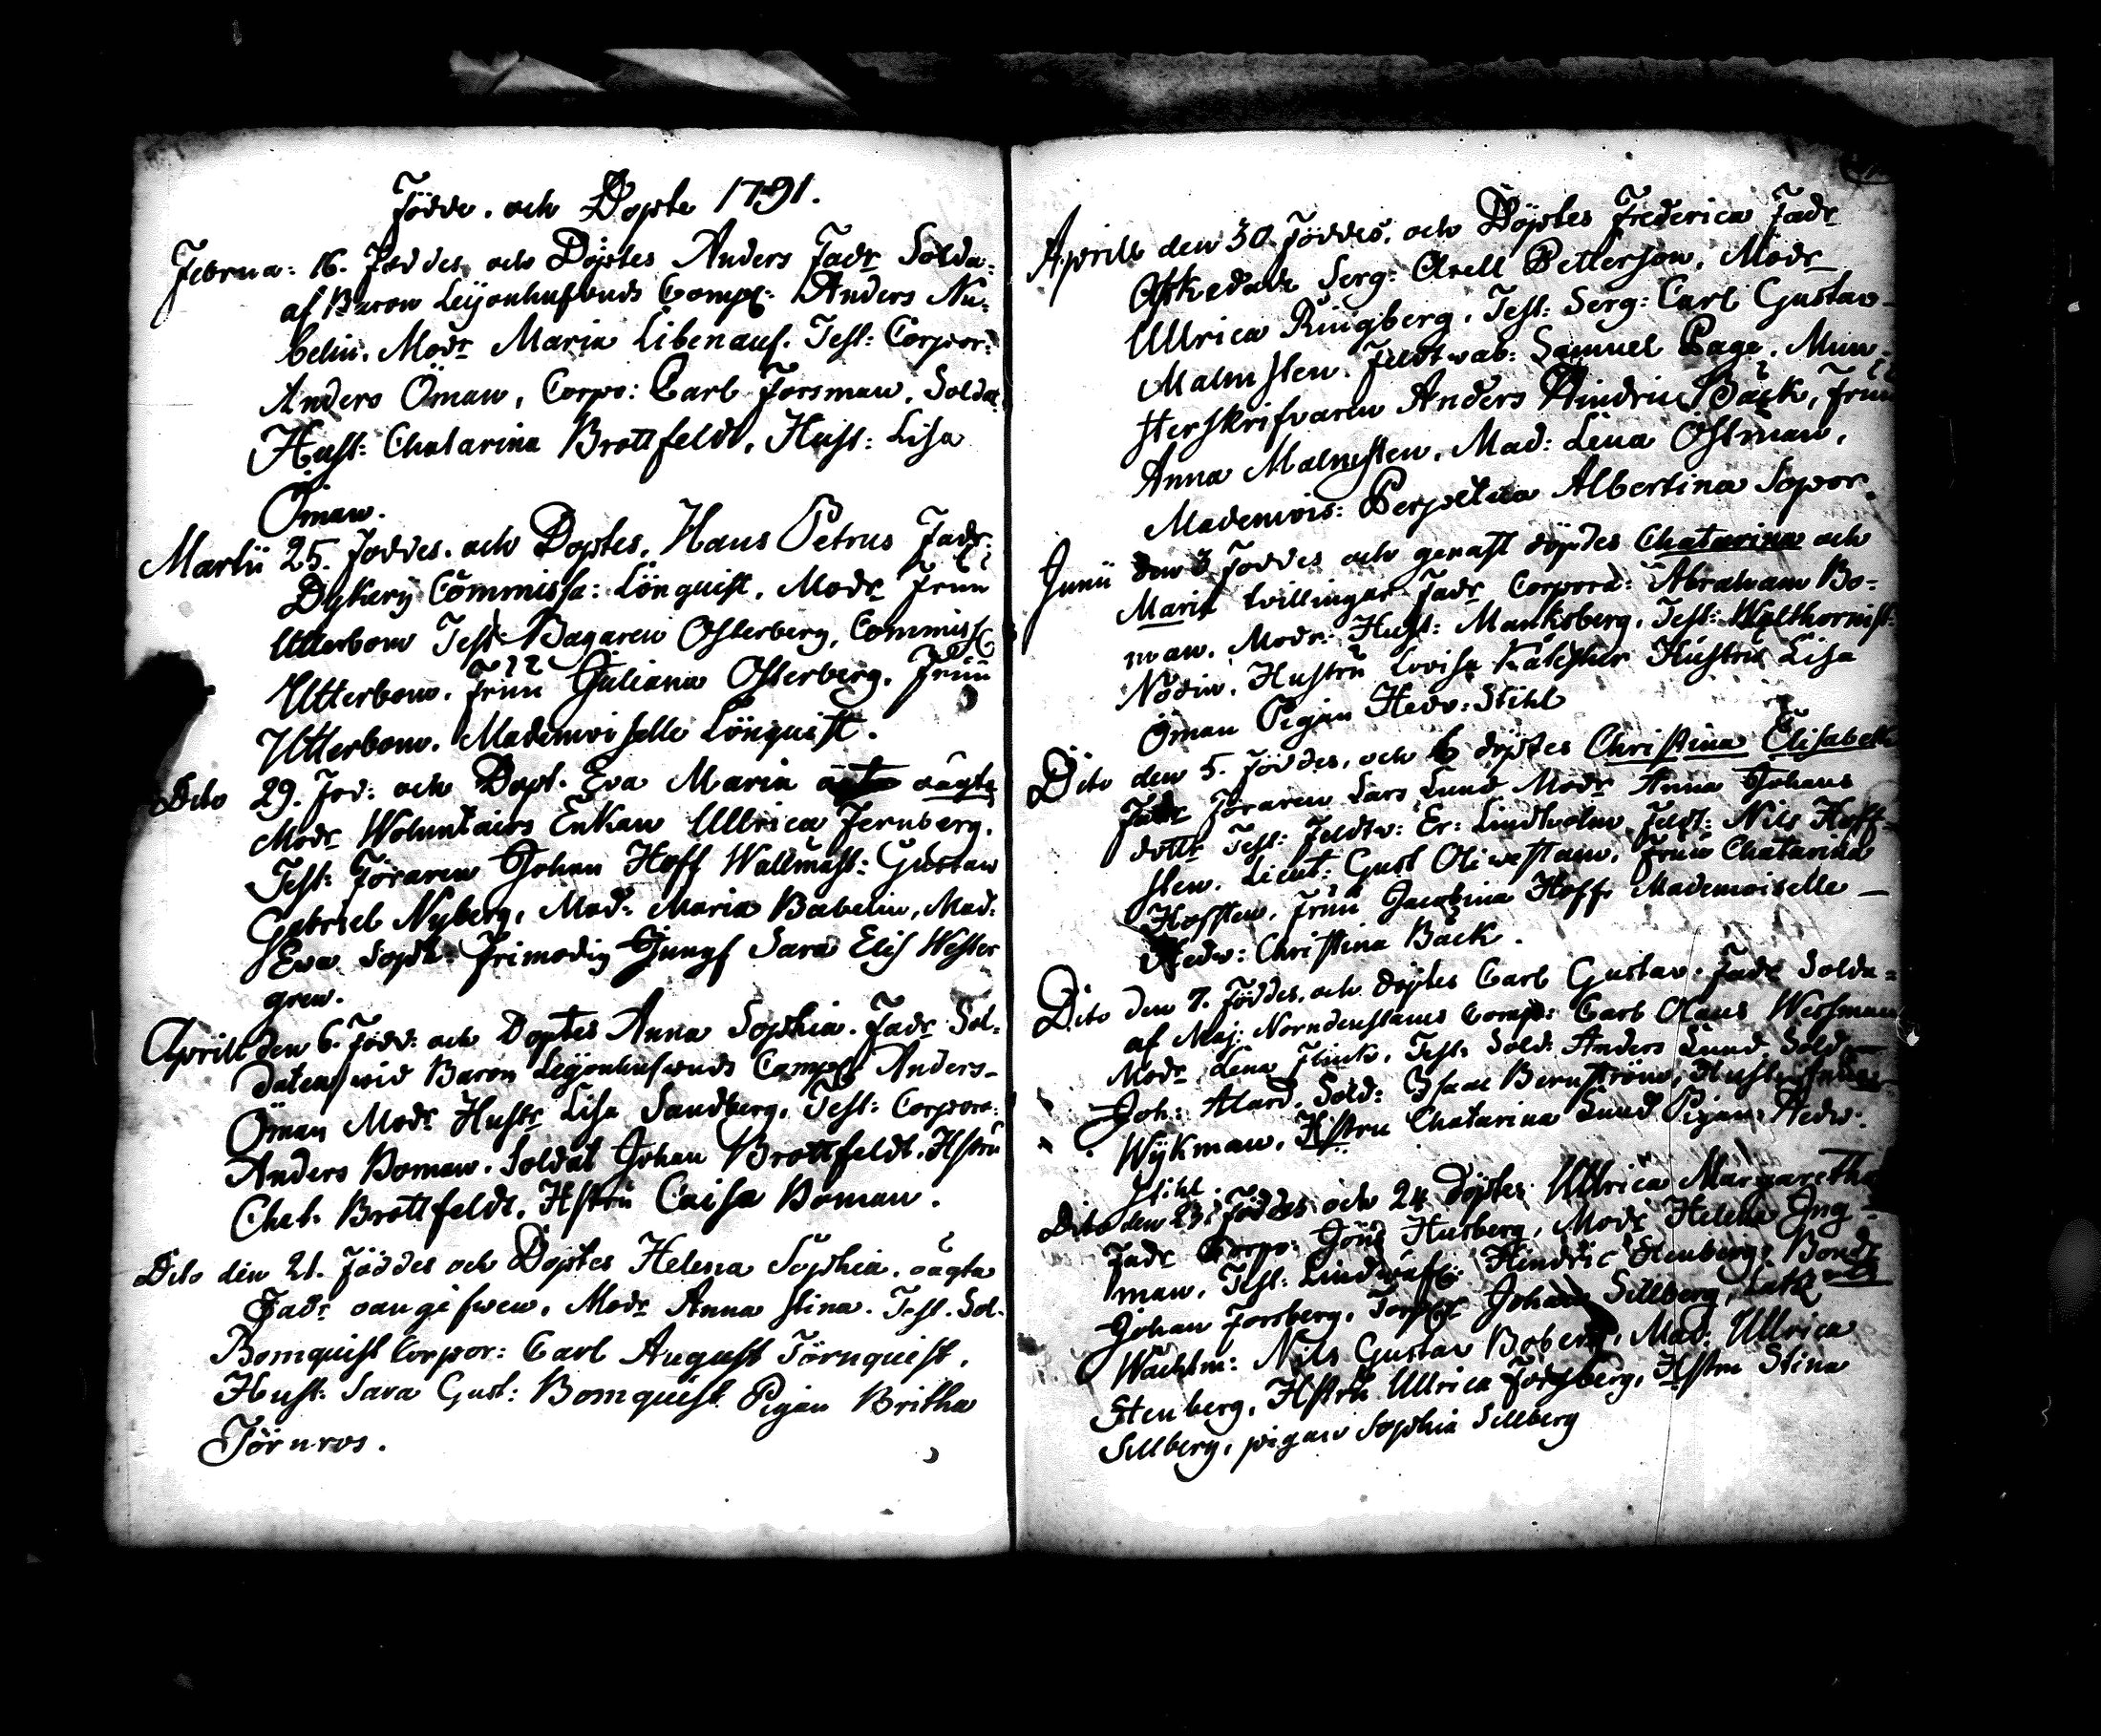 Födde. och Döpte 1791.
Februa: 16. Föddes och Döptes Anders Fadr Solda:
af Baron Leijonhufvuds Comp: Anders Nu-
belin. Modr Maria Libenauf. Test: Corpor:
Anders Öman, Corpo: Carl Forsman, Solda:
Hust: Chatarina Brottfeldt, Hust: Lisa
Öman.
Martii 25. Foddes. och Doptes. Hans Petrus Fadr:
Dykerij Commissa: Lönquist. Modr Fruu
Utterbom Test: Bagaren Osterberg, Commiss
Utterbom. Fruu Juliana Osterberg. Fruu
Utterbom. Mademoiselle Lönquist.
Dito 29. Fod: och Dopt. Eva Maria oägta
Modr Woluntairs Enkan Ullrica Fernberg.
Test: Föraren Johan Hoff Wallmäst: Gustaw
Gabriel Nyberg, Mad: Maria Babelin, Mad:
Eva Soph: Frimodig Jungf Sara Elis Wester
gren.
Aprill den 6. Född: och Doptes Anna Sophia. Fadr Sol-
daten wid Baron Leijonhufwuds Comp Anders-
Öman Modr Hustr Lisa Sandberg. Test: Corpora:
Anders Boman. Soldat Johan Brottfeldt. Hstru
Chat. Brottfeldt. Hstru Caisa Boman.
Dito den 21. Föddes och Döptes Helena Sophia. oägta
Fadr oangifwen. Modr Anna Stina. Test. Sol-
Bomquist Corpor: Carl August Törnquist.
Hust: Sara Gust: Bomquist Pigan Britha
Törnros.
Aprill den 30. Föddes. och Döptes Frederica Fadr
Afskedade Serg: Axell Petterson. Modr
Ullrica Ringberg. Test: Serg: Carl Gustav
Malmsten. Feldtwab: Samuel Page. Mun-
sterskrifvaren Anders Hindric Bäck, Fruu
Anna Malmsten. Mad: Lena Ostman.
Mademois: Perpetua Albertina Sopor.
Junii den 3 Foddes och genast döptes Chatarina och
Maria tvillingar Fadr Corpora: Abraham Bo-
man. Modr: Hust: Manksberg. Test: Walthornist:
Nodin. Hustru Lovisa Hustru Lisa
Öman Pigan Hedv: Stihl
Dito den 5. Föddes, och 6 döptes Christina Elisabeth
Fadr Föraren Lars Lund Modr Anna Johans
dottr Test: Feldtv: Er: Lindholm Feldt: Nils Hoff-
sten. Lieut: Gust Olivestam. Fruu Chatarina
Hoffsten. Fruu Jacobina Hoff. Mademoiselle —
Hedw: Christina Bäck.
Dito den 7. Föddes. och doptes Carl Gustav. Fadr Solda-
af Maj: Nordenstams Comp: Carl Olaus Wessman
Modr Lena Flink. Test: Sold: Anders Lund. Sold
Joh: Alard. Sold: Isaac Bernström, Hust:
Wijkman. Hstru Chatarina Lund Pigan: Hedw:
Stihl.
Dito den 23. Föddes och 24 Döptes Ullrica Margaretha
Fadr Corpo: Jöns Husberg, Modr Helena Ing-
man. Test: Hindric Stenberg. Bond
Johan Forsberg. Johan Sillberg
Wachtm: Nils Gustav Boberg, Mad: Ullrica
Stenberg. Hstru Ullrica Forsberg. Hstru Stina
Sillberg, pigan Sophia Sillberg